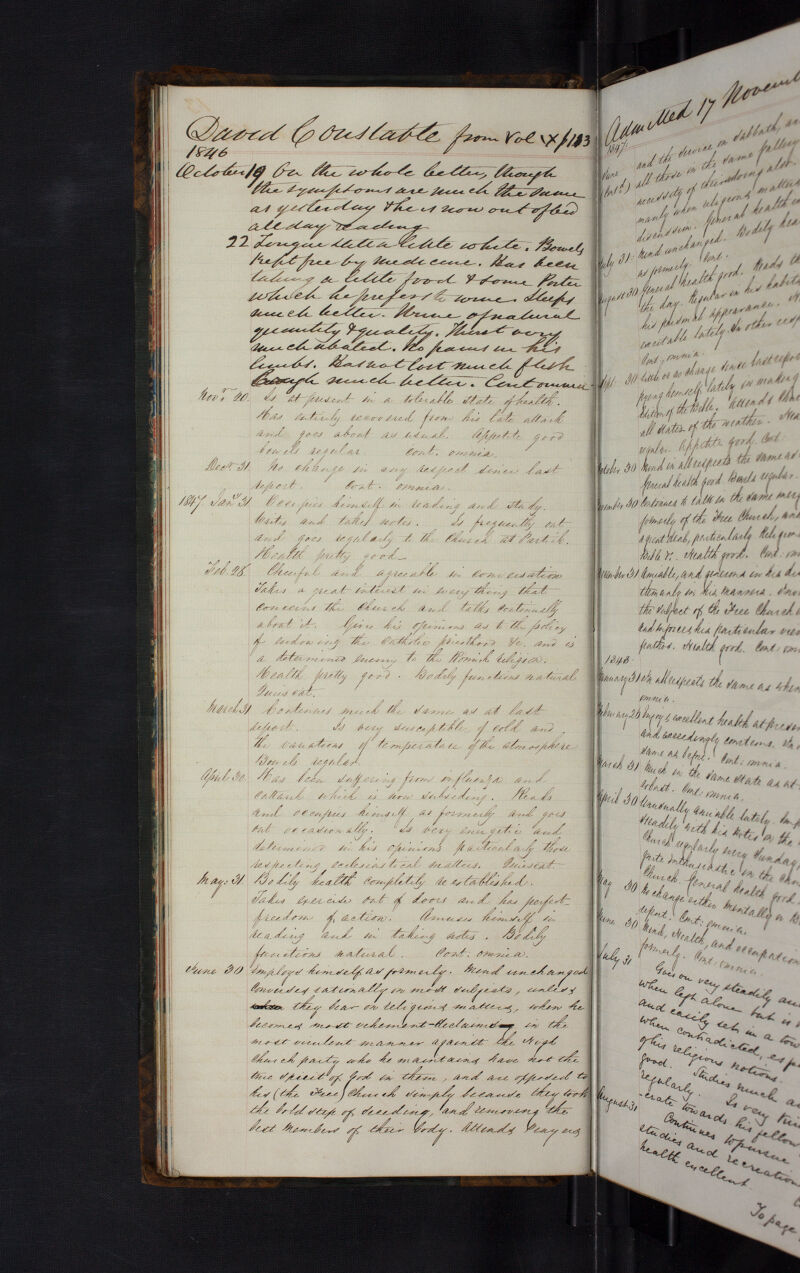 David Constable from Vol X p 183
1846
October 19 On the whole better, though
the symptoms are much the same
as yesterday & he is now out of bed
all day reading
22 Tongue still a little white. Bowels
kept free by medicine. Has been
taking a little food & some Porter
which he prefers to wine. Sleeps
much better. Urine of natural
quantity & quality. Thirst very
much abated. No pains in his
limbs. Has not lost much flesh
Cough much better. Cont omnia
Novr. 20. Is at present in a tolerable state of health.
Has entirely recovered from his late attack
and goes about as usual. Appetite good
bowels regular. Cont. omnia.
Decr. 31. No change in any respect since last
report. Cont. omnia.
1847. Jany. 31. Occupies himself in reading and study.
Writes and takes notes. Is frequently out
and goes regularly to the Church at Partick.
Health pretty good.
Feb. 28. Cheerful and agreeable in conversation
Takes a great interest in every thing that
concerns the Church and talks continually
about it. Gives his opinions as to the policy
of endowing the Catholic priesthood &c. and is
a determined enemy to the Romish religion.
Health pretty good. Bodily functions natural
Quiescat.
March 31 Continues much the same as at last
report. Is very susceptible of cold and
the variations of temperature of the atmosphere
Bowels regular
April 30. Has been suffering from influenza and
catarrh which is now subsiding. Reads
and occupies himself as formerly and goes
out occasionally. Is very energetic and
determined in his opinions particularly those
respecting ecclesiastical matters. Quiescat
May. 31. Bodily health completely re-established.
Takes exercise out of doors and has perfect
freedom of action. Amuses himself in
reading and in taking notes. Bodily
functions natural. Cont. omnia.
June 30 Employs himself as formerly. Mind unchanged
Converses rationally on most subjects, unless
they bear on religious matters, when he
becomes most vehement & declaims in the
most virulent manner against the High
Church party who he maintains have not the
true spirit of God in them, and are opposed to
his (the Free) Church simply because they took
the bold step of seceding, and removing the
best members of their body. Attends prayers
Admitted 17 Novemb
1847
June and the service on Sabbath, an
(Contd.) all those in the same gallery
necessity of their doing also.
manly when religious matters
discussion. General health
July 31. Mind unchanged. Bodily hea
as formerly. Cont.
August 30 General health good. Reads th
the day. Regular in his habits
his personal appearance.
excitable lately. In other resp
Cont. omnia.
Sept. 30 Little or no change since last repor
lately in making
of the Bible. Attends Chur
all states of the weather.
regular. Appetite good. Cont
October 30 Mind in all respects the same as
General health good. Bowels regular.
November 30 Continues to talk in the same
formerly of the Free Church, and
a great deal, particularly Religion
Health good. Cont. om
December 31 Amiable, and generous in his di
manly in his manners.
the subject of the Free Church
and enforces his particular view
Health good. Cont. om
1848
January 31 In all respects the same as when
omnia.
February 29 Enjoys excellent health at presen
and exceedingly contented.
same as before. Cont. omnia.
March 31 Much in the same state as at
robust. Cont. omnia.
April 30 Unusually amiable lately.
steadily with his notes on the
Church regularly every Sunday
quite enthusiastic on the
Church. General health good.
May 30 No change either mentally or b
report. Cont. omnia.
June 30 Mind, Health, and occupation
formerly. Cont. omnia.
July 31 Goes on very steadily an
when left alone but is
and easily sets in a tow
when contradicted, esp
of his religious notions.
good. Studies much a
regularly. Is very kin
August 31 -erate towards his fellow
Continues to pursue
studies and recreation
health excellent.
To page